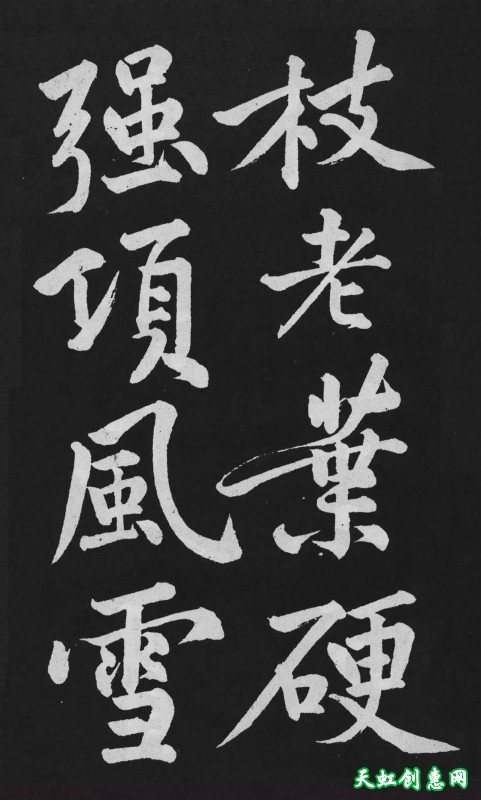 枝老葉硬
强項風雪
天虹创意网